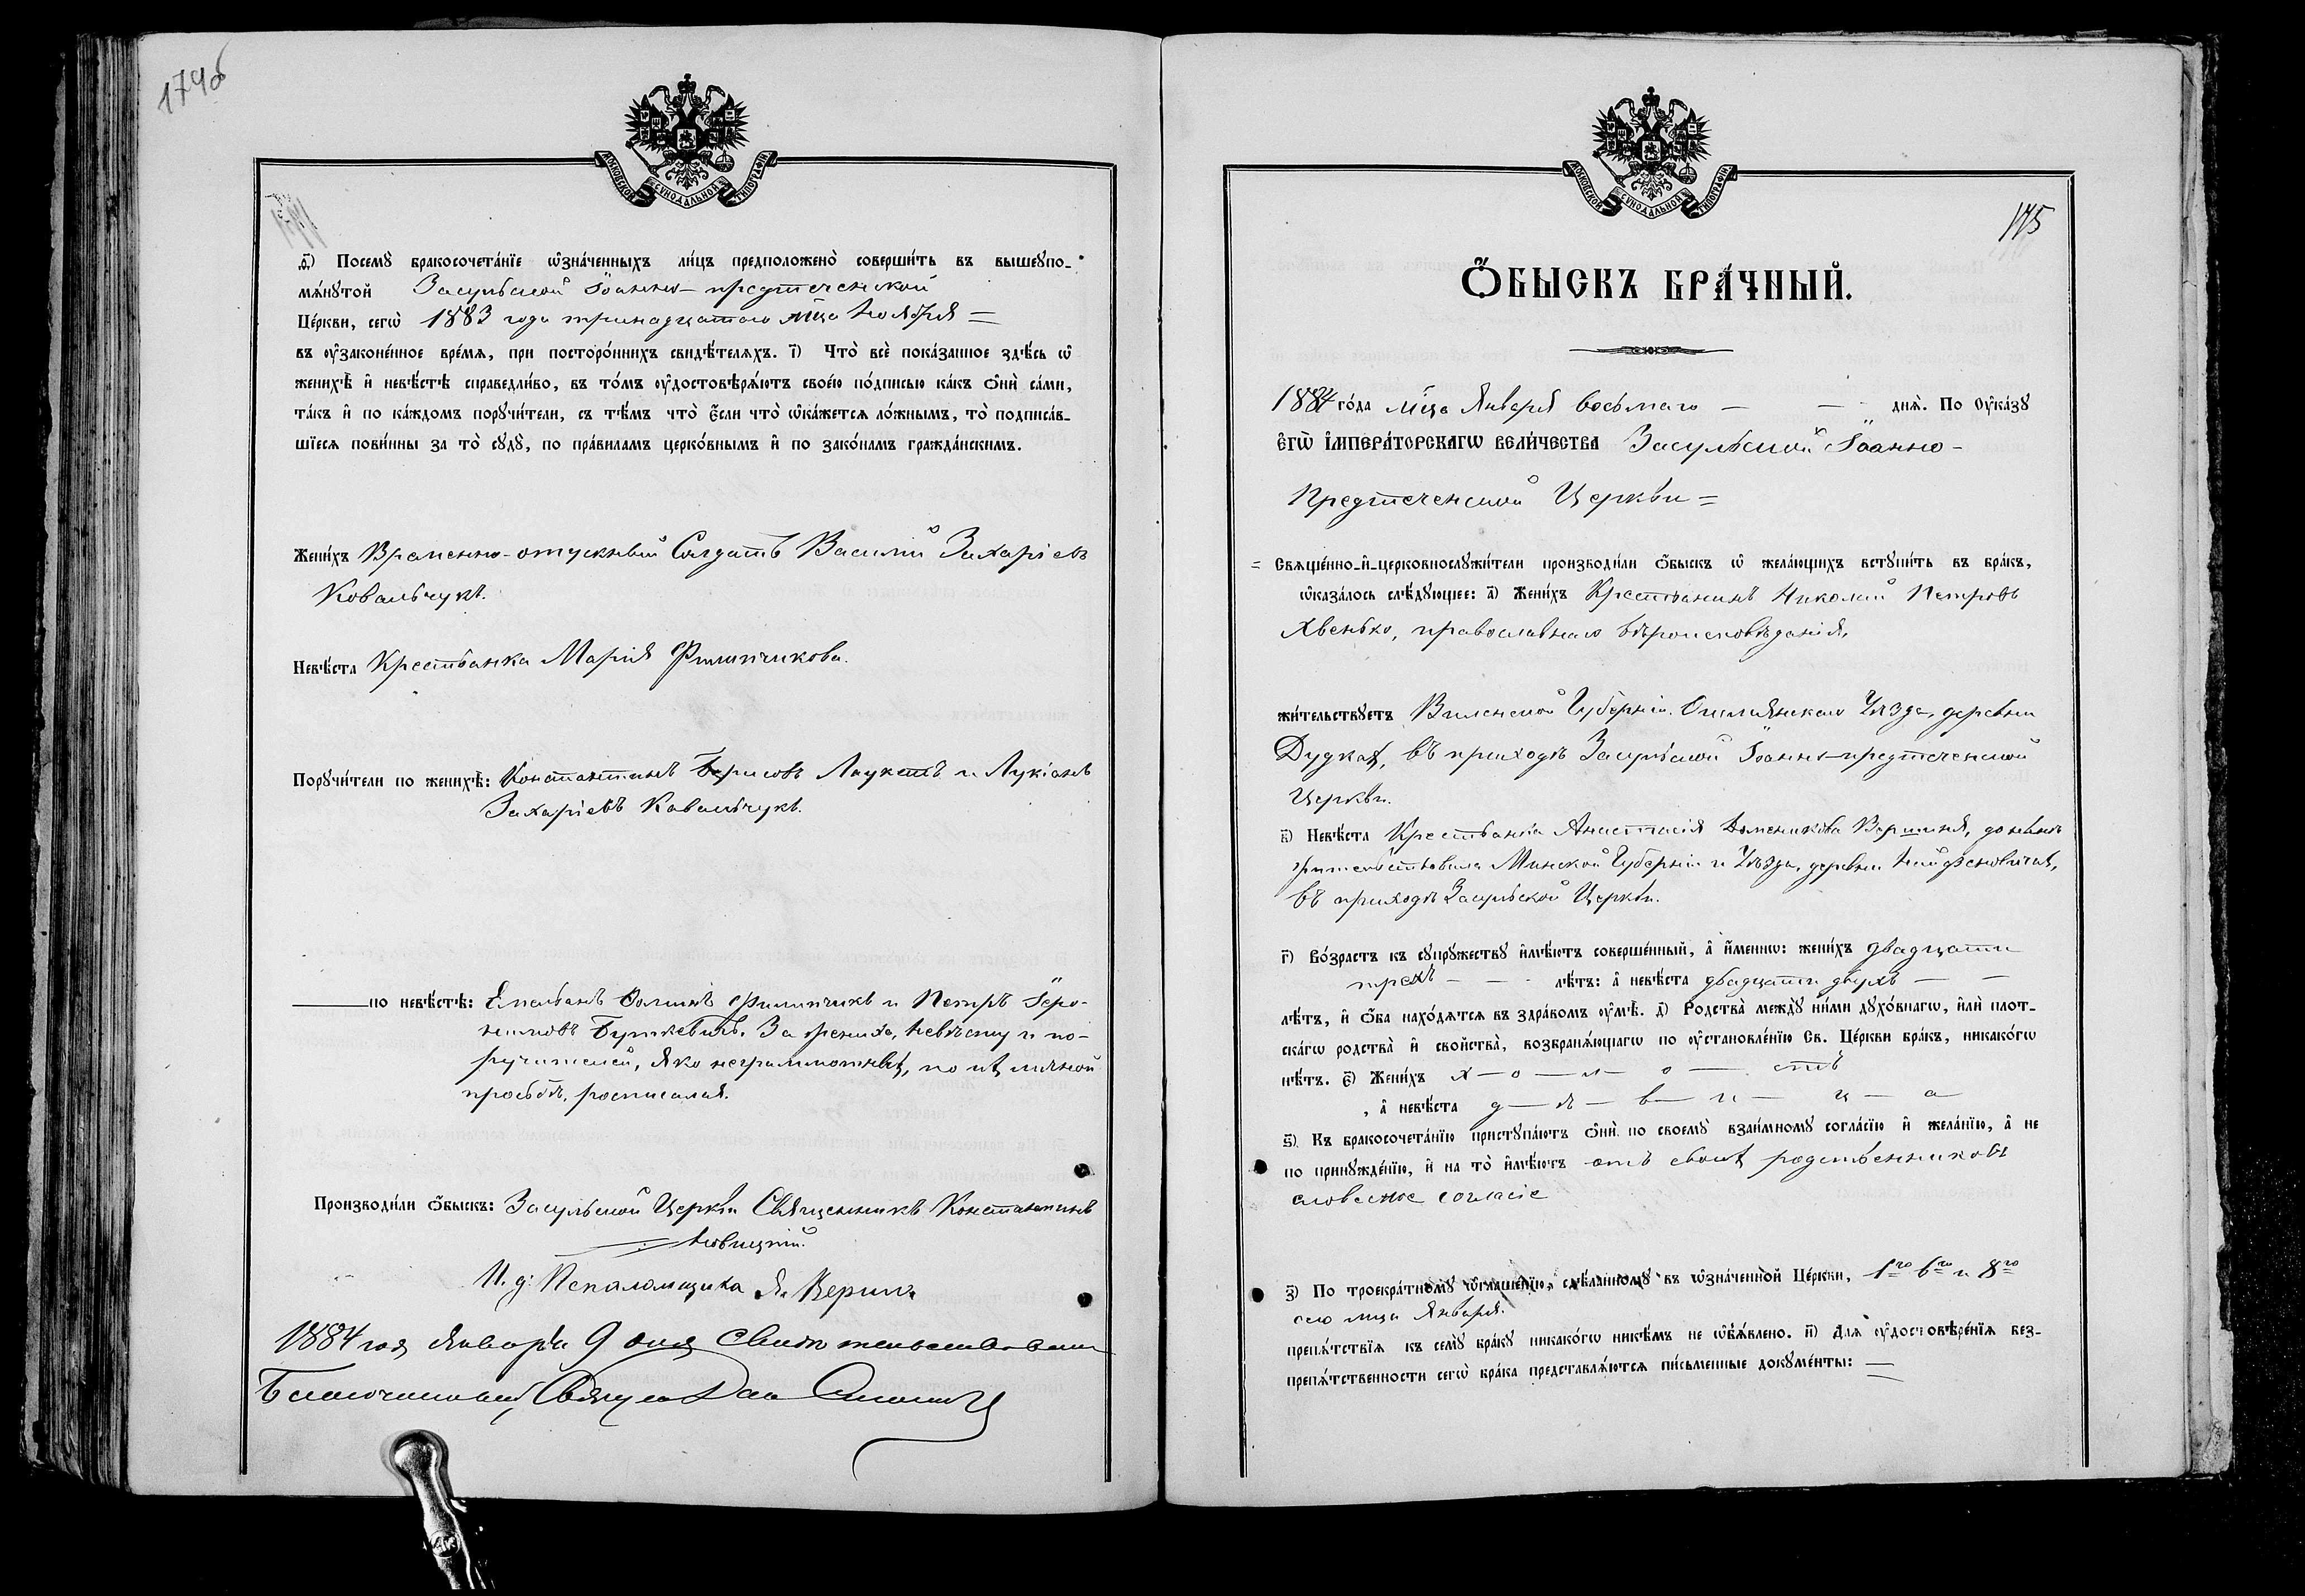 174об
МОСКОВСКОЙ СѴНОДАЛЬНОЙ ТИПОГРАФІИ
ѳ҃) Посемꙋ̀ бракосочета́нїе ѡ҆зна́ченныхъ ли́цъ предположено̀ соверши́ть въ вышеꙋпо-
мѧ́нꙋтой Засульской Іоанно-предтеченской
Це́ркви, сегѡ̀ 1883 года тринадцатого мѣца Ноября =
въ ᲂу҆законе́нное вре́мѧ, при посторо́ннихъ свидѣ́телѧхъ. і҃) Что̀ всѐ пока́занное здѣ́сь ѡ҆
женихѣ̀ и҆ невѣ́стѣ справедли́во, въ то́мъ ᲂу҆достовѣрѧ́ютъ свое́ю по́дписью ка́къ ѻ҆нѝ са́ми,
та́къ и҆ по ка́ждомъ порꙋчи́тели, съ тѣ́мъ что̀ є҆́сли что̀ ѡ҆ка́жетсѧ ло́жнымъ, то̀ подписа́в-
шїесѧ пови́нны за то̀ сꙋдꙋ̀, по пра́виламъ церко́внымъ и҆ по зако́намъ гражда́нскимъ.
Жени́хъ Временно-отпускный Солдатъ Василій Захаріевъ
Ковальчукъ.
Невѣ́ста Крестьянка Марія Филипчикова.
Порꙋчи́тели по женихѣ̀: Константинъ Борисовъ Лаукстъ и Лукіанъ
Захаріевъ Ковальчукъ.
по невѣ́стѣ: Емельянъ Филипчикъ и Петръ Іеро-
нимовъ Буткевичъ. За жениха, невѣсту и по-
ручителей, яко неграмотныхъ, по ихъ личной
просьбѣ, росписался.
Производи́ли ѻ҆́быскъ: Засульской Церкви Священникъ Константинъ
Новицкій.
И. д. Псаломщика Я. Верига
1884 года Января 9 дня Свидѣтельствовалъ
Благочинный, Священникъ
МОСКОВСКОЙ СѴНОДАЛЬНОЙ ТИПОГРАФІИ
175
Ѻ҆́БЫСКЪ БРА́ЧНЫЙ.
1884 го́да мѣца Января восьмаго — — днѧ̀. По Оу҆ка́зꙋ
Є҆ГѠ̀ И҆МПЕРА́ТОРСКАГѠ ВЕЛИ́ЧЕСТВА Засульской Іоанно-
Предтеченской Церкви =
= Свѧще́нно-и҆-церковнослꙋжи́тели производи́ли ѻ҆́быскъ ѡ҆ жела́ющихъ встꙋпи́ть въ бра́къ,
ѡ҆каза́лось слѣ́дꙋющее: а҃) Жени́хъ Крестьянинъ Николай Петровъ
Хвенько, православнаго вѣроисповѣданія,
жи́тельствꙋетъ Виленской Губерніи, Ошмянскаго Уѣзда, деревни
Дудкахъ, въ приходѣ Засульской Іоанно-предтеченской
Церкви.
в҃) Невѣ́ста Крестьянка Анастасія Доменикова донынѣ
жительствовала Минской Губерніи и Уѣзда, деревни
въ приходѣ Засульской Церкви.
г҃) Во́зрастъ къ сꙋпрꙋжествꙋ и҆мѣ́ютъ соверше́нный, а҆ и҆́меннѡ: жени́хъ двадцати
трехъ — — лѣ́тъ: а҆ невѣ́ста двадцати двухъ — —
лѣ́тъ, и҆ ѻ҆́ба нахо́дѧтсѧ въ здра́вомъ ᲂу҆мѣ̀. д҃) Родства̀ междꙋ̀ ни́ми дꙋхо́внагѡ, и҆лѝ плот-
ска́гѡ родства̀ и҆ сво́йства, возбранѧ́ющагѡ по ᲂу҆становле́нїю Св. Це́ркви бра́къ, никако́гѡ
нѣ́тъ. є҃) Жени́хъ х — о — л — о — стъ
, а҆ невѣ́ста д — ѣ — в — и — ц — а
ѕ҃) Къ бракосочета́нїю пристꙋпа́ютъ ѻ҆нѝ по своемꙋ̀ взаи́мномꙋ согла́сїю и҆ жела́нїю, а҆ не
по принꙋжде́нїю, и҆ на то̀ и҆мѣ́ютъ отъ своихъ родственниковъ
словесное согласіе
з҃) По троекра́тномꙋ ѡ҆глаше́нїю, сдѣ́ланномꙋ въ ѡ҆зна́ченной Це́ркви, 1го 6го и 8го
сего мѣца Января.
препѧ́тствїѧ къ семꙋ̀ бра́кꙋ никако́гѡ никѣ́мъ не ѡ҆б̾ѧ́влено. и҃) Длѧ̀ ᲂу҆достовѣре́нїѧ без-
препѧ́тственности сегѡ̀ бра́ка представлѧ́ютсѧ пи́сьменные докꙋме́нты: —